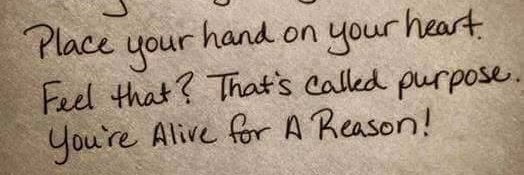 Place your hand on your heart.
Feel that? That's called purpose.
You're Alive for A Reason!